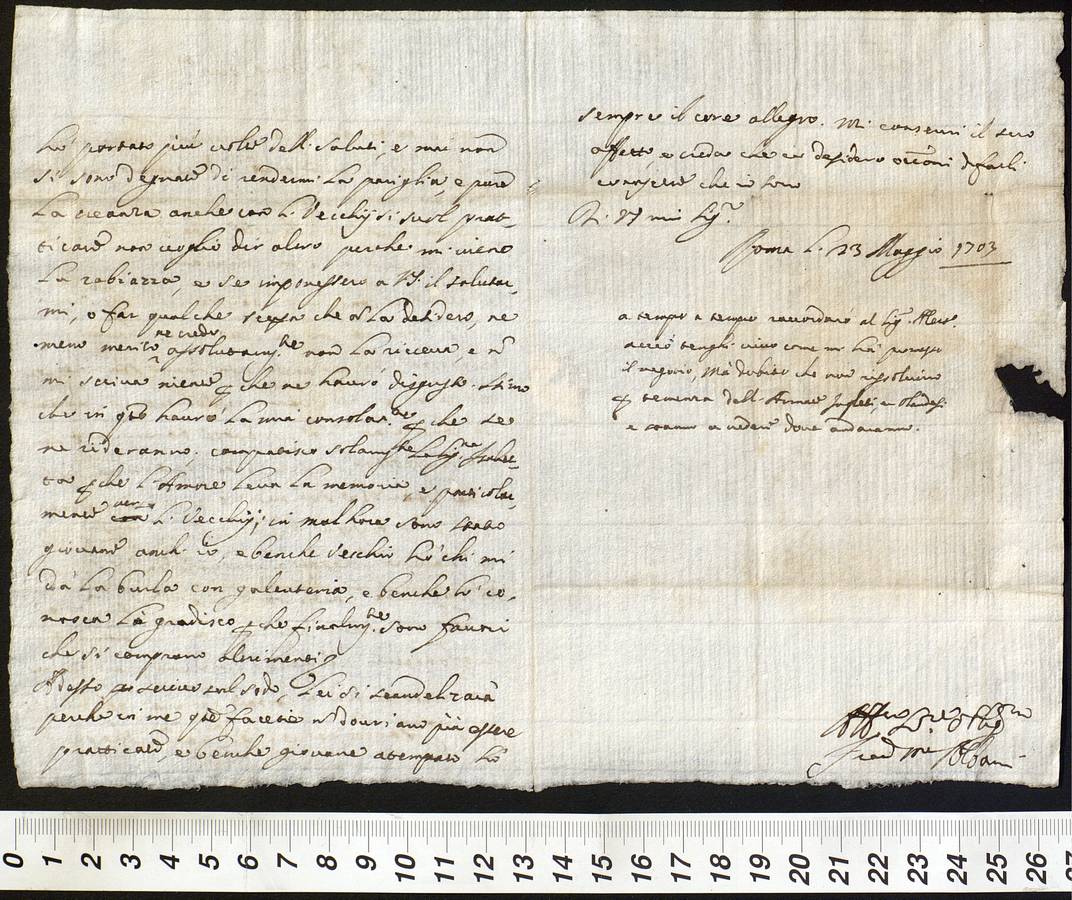 hò portato più volte dell. saluti, e mai non
si sono degnate di rendermi la pariglia, e pure
la creanza anche con l. Vecchij si suol prat-
ticare non voglio dir altro perche mi viene
la rabiazza, e se imponessero a VS. il salutar-
mi, o far qualche che la desidero, ne
meno merito ne credo assolutam.te non la riceva, e n
mi scriva niente p che ne haverò disgusto, stimo
che in q.to haurò la mia consolaz.ne p che se
ne rideranno. compatisco solam.te la Sig.ra Isabet-
ta p che l'Amore leva la memoria, e particolar-
mente verso l. Vecchij; in mal hore sono stato
giovane anch. io, e benche Vecchio hò chi mi
dà la burla con galanteria, e benche lò co-
nosca lo gradisco p che finalm.te sono favori
che si comprano
Adesso scrivo sul sodo, Lei si scandelizarà
perche in me q.te facetie n dovriano più essere
pratticate, e benche giovane attempato hò
sempre il core allegro. Mi conservi il suo
affetto, e creda che io desidero occ.oni di farli
conoscere che io sono
Di VS mio Sig.re
Roma l. 23 Maggio 1703
a tempo a tempo raccordarò al Sig. Aless.
acciò tenghi vivo come mi hà promesso
il negotio, Mà dubito che non risolvino
p temenza dell. Armate Inglesi, e Olandesi
e stanno a vedere dove andaranno.
Aff.mo S.re Obl.mo